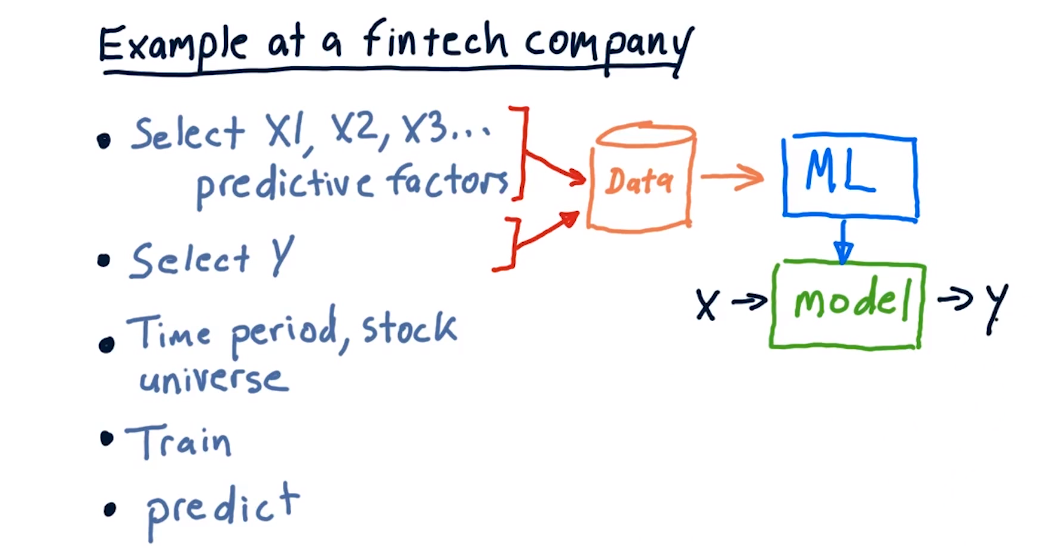 Example at a fintech company
• Select X1, X2, X3...
predictive factors
• Select Y
• Time period, stock
universe
• Train
• predict
Data
ML
X → model → y